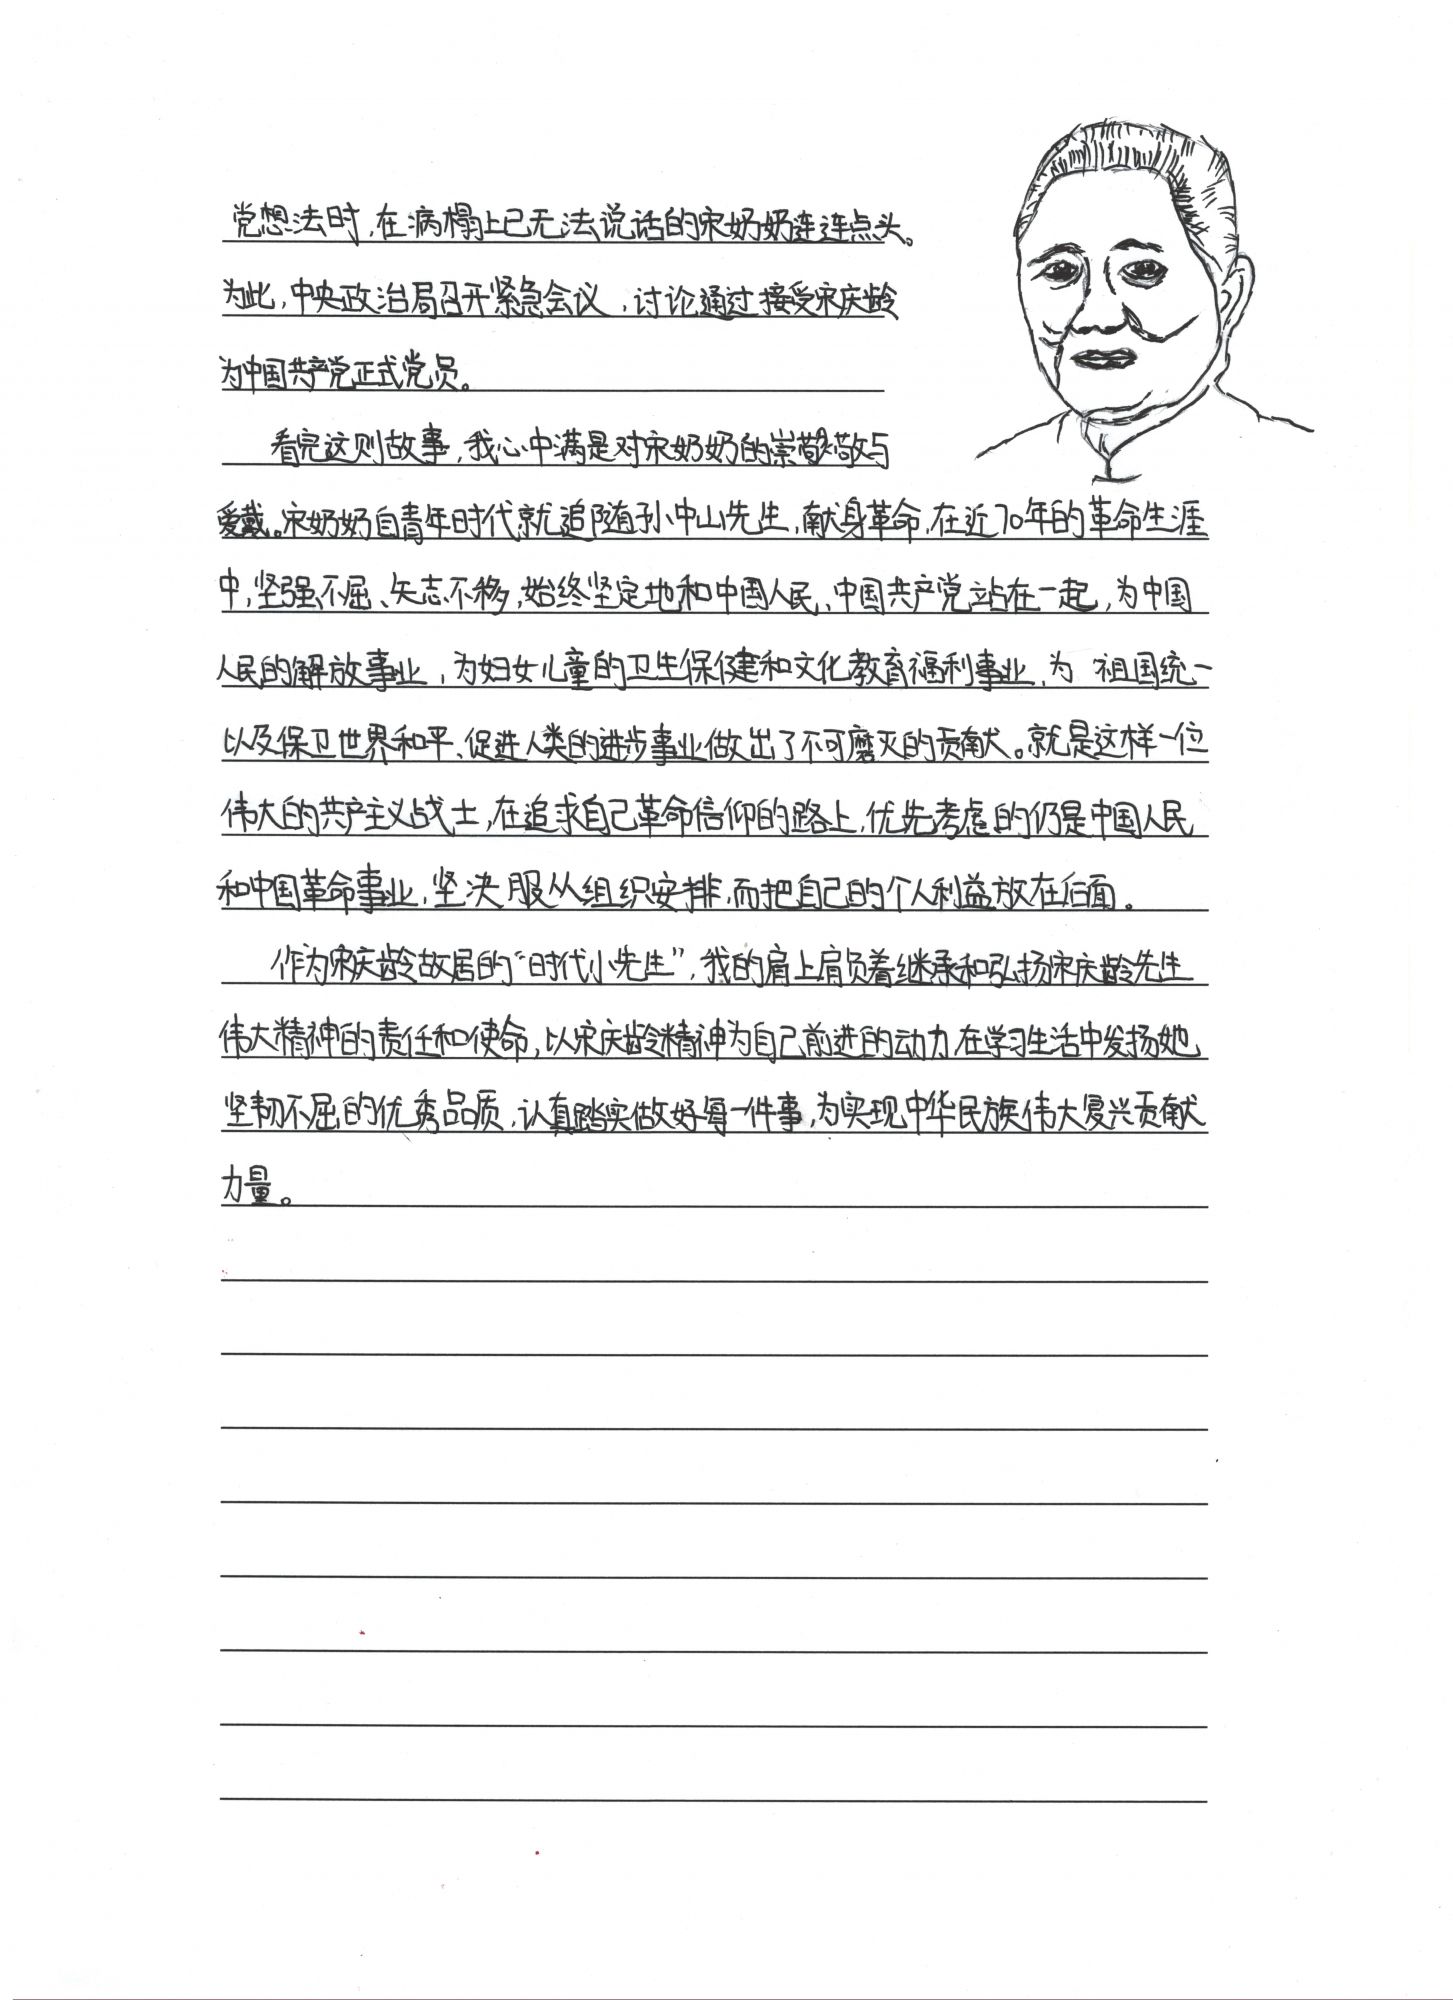 党想法时,在病榻上已无法说话的宋奶奶连连点头。
为此,中央政治局召开紧急会议,讨论通过接受宋庆龄
为中国共产党正式党员。
看完这则故事,我心中满是对宋奶奶的崇敬与
爱戴。宋奶奶自青年时代就追随孙中山先生,献身革命,在近70年的革命生涯
中,坚强不屈、矢志不移,始终坚定地和中国人民、中国共产党站在一起,为中国
人民的解放事业,为妇女儿童的卫生保健和文化教育福利事业,为 祖国统一
以及保卫世界和平、促进人类的进步事业做出了不可磨灭的贡献。就是这样一位
伟大的共产主义战士,在追求自己革命信仰的路上,优先考虑的仍是中国人民
和中国革命事业,坚决服从组织安排,而把自己的个人利益放在后面。
作为宋庆龄故居的“时代小先生”,我的肩上肩负着继承和弘扬宋庆龄先生
伟大精神的责任和使命,以宋庆龄精神为自己前进的动力,在学习生活中发扬她
坚韧不屈的优秀品质,认真踏实做好每一件事,为实现中华民族伟大复兴贡献
力量。